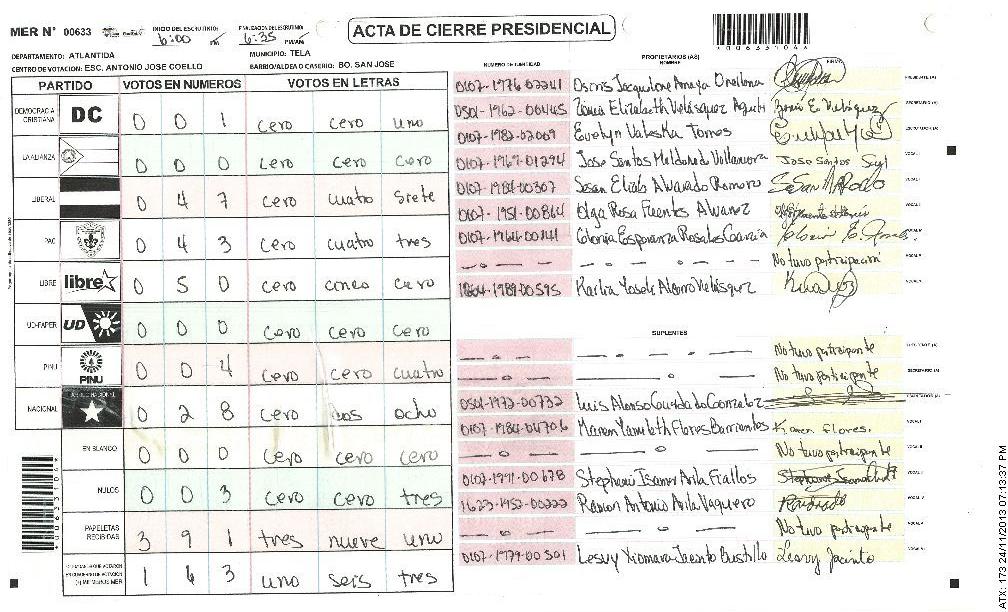 MER N° 00633 INICIO DEL ESCRUTINIO: 6:00 PM FINALIZACION DEL ESCRUTINIO: 6:35 PM/AM
ACTA DE CIERRE PRESIDENCIAL
DEPARTAMENTO: ATLANTIDA MUNICIPIO: TELA
CENTRO DE VOTACION: ESC. ANTONIO JOSE COELLO BARRIO/ALDEA O CASERIO: BO. SAN JOSE
PARTIDO VOTOS EN NUMEROS VOTOS EN LETRAS
DEMOCRACIA CRISTIANA DC 0 0 1 cero cero uno
LA ALIANZA 0 0 0 cero cero cero
LIBERAL 0 4 7 cero cuatro siete
PAC 0 4 3 cero cuatro tres
LIBRE libre 0 5 0 cero cinco cero
UD-FAPER UD 0 0 0 cero cero cero
PINU PINU 0 0 4 cero cero cuatro
NACIONAL 0 2 8 cero dos ocho
EN BLANCO 0 0 0 cero cero cero
NULOS 0 0 3 cero cero tres
PAPELETAS RECIBIDAS 3 9 1 tres nueve uno
1 6 3 uno seis tres
NUMERO DE IDENTIDAD PROPIETARIOS (AS) NOMBRE FIRMA
0107-1976-02241 PRESIDENTE (A)
0501-1962-00445 Elizabeth Velásquez SECRETARIO (A)
0107-1982-02009 Evelyn Valeska Torres ESCRUTADOR (A)
0107-1967-01294 Jose Santos Maldonado Villanueva Jose Santos VOCAL I
0107-1984-00307 Susan Elias Alvarado Romero
0107-1951-00864 Olga Rosa Fuentes Alvarez
Gloria Esperanza Rosales Garcia
No tuvo participación
1804-1989-00595 Karlia
SUPLENTES
No tuvo participante
No tuvo participante
0501-1972-00732 Luis Alonso Gonzalez
0107-1984-04706 Karen Yamileth Flores Barrientos Karen Flores.
No tuvo participante
0107-1991-00678 Stephani Avila Fiallos
1623-1952-00222 Ramon Antonio Avila Vaquero
No tuvo participante
0107-1979-00501 Lesvy Xiomara Jacinto Bustillo Lesvy Jacinto
ATX: 173 24/11/2013 07:13:37 PM